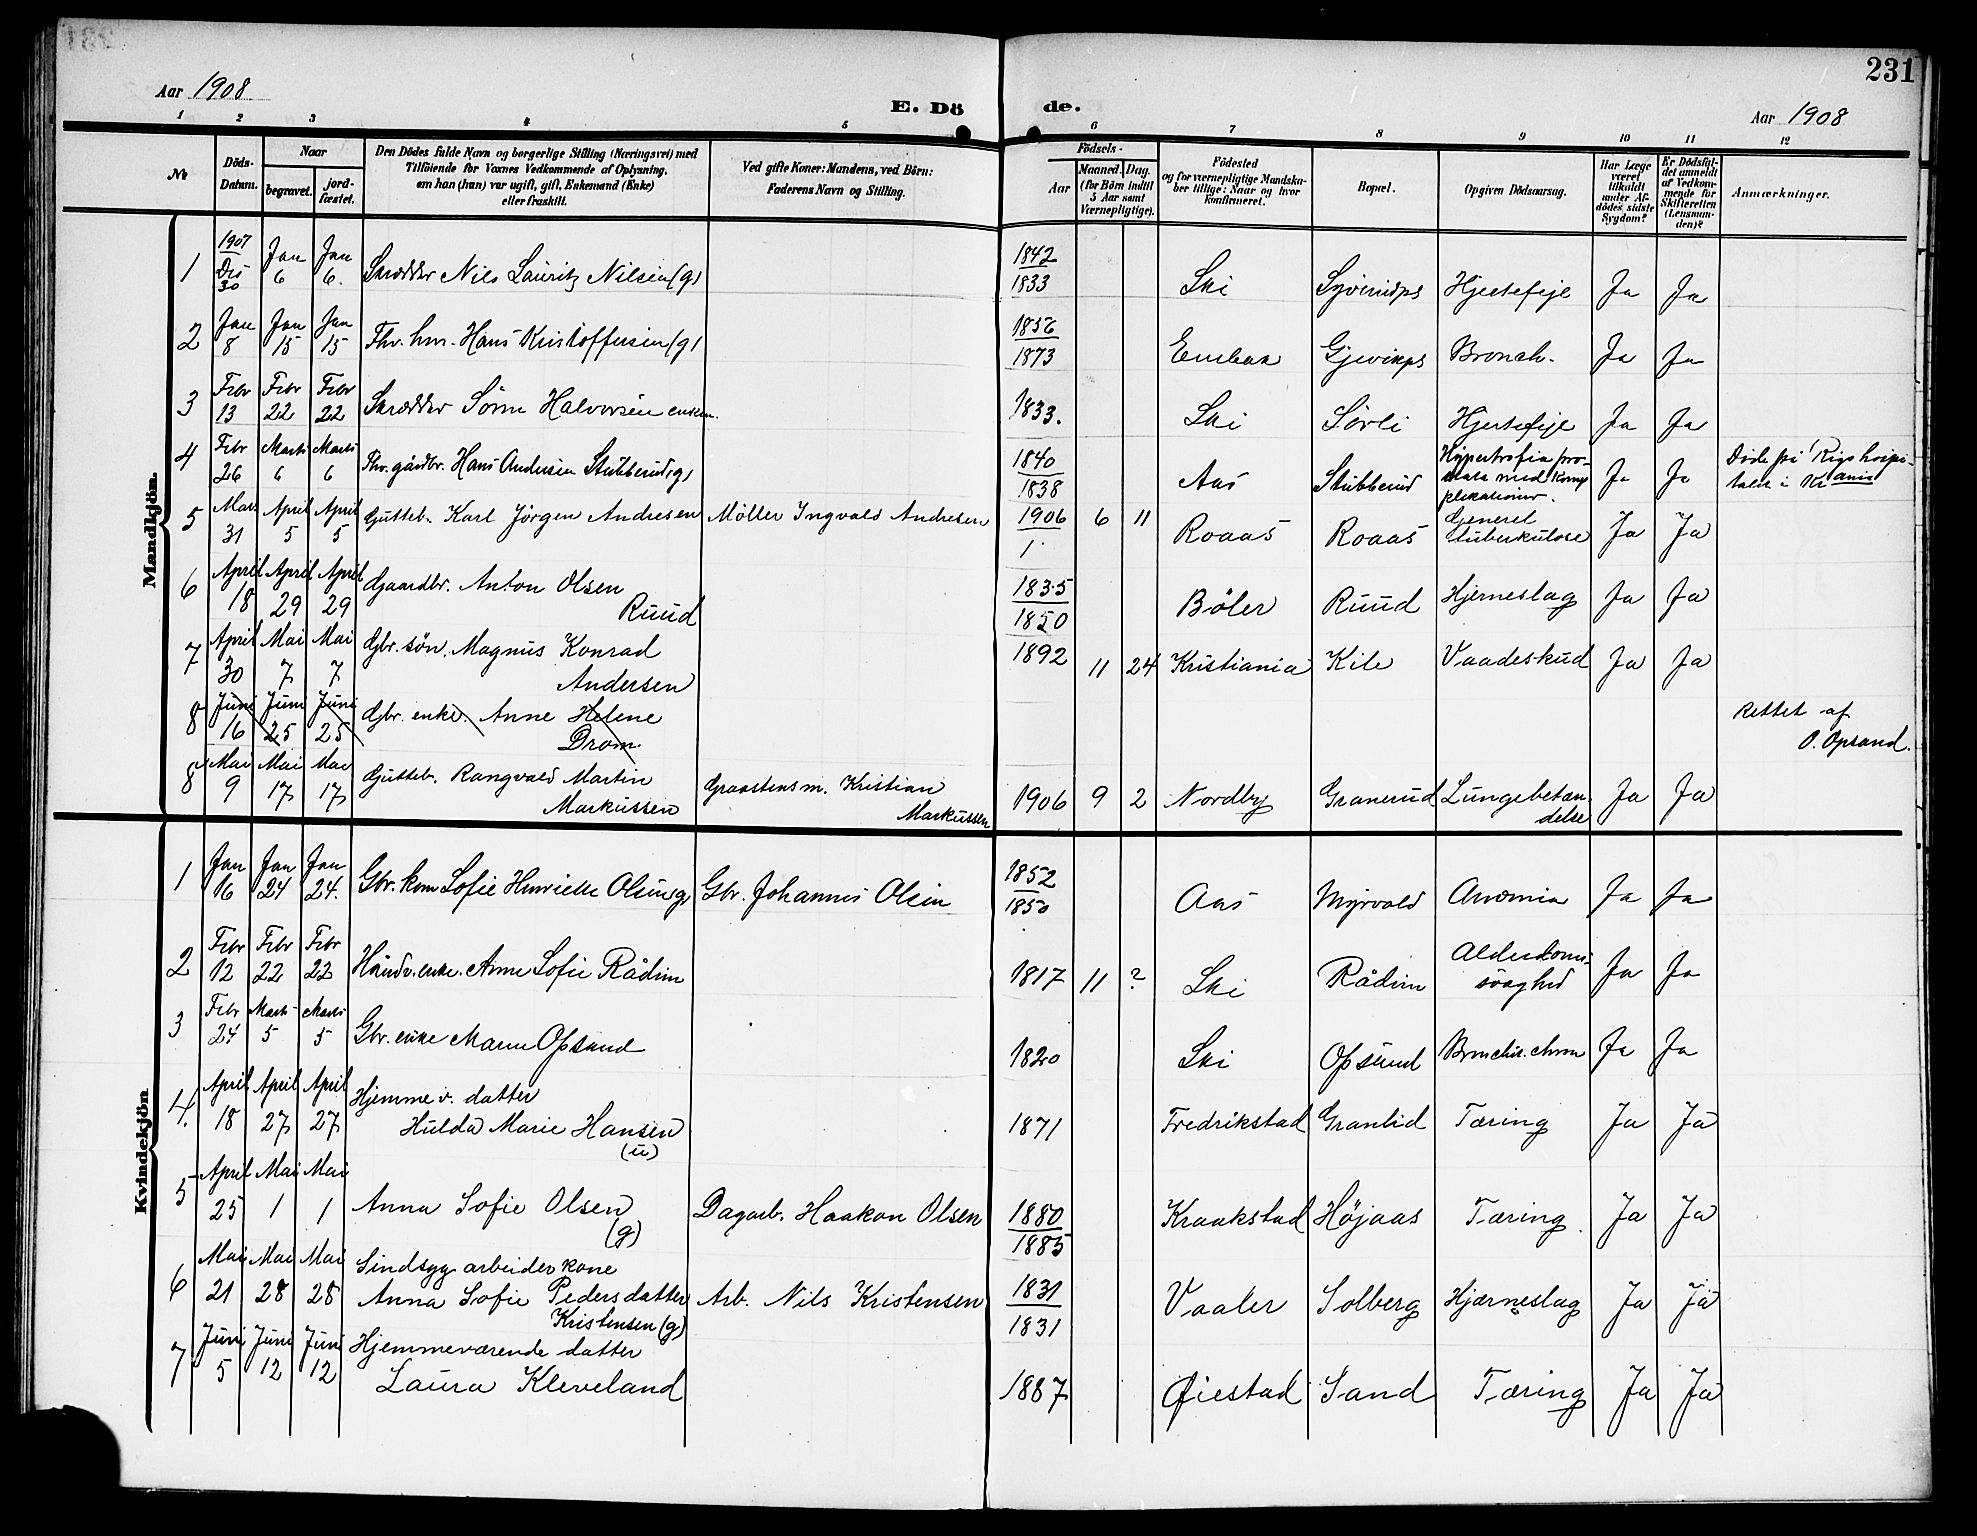 231
Aar 1908
E. Dö
de.
Aar 1908
1 2 3 4 5 6 7 8 9 10 11 12
No
Döds-Datum.
Naar
begravet.
jord-fæstet.
Den Dödes fulde Navn og borgerlige Stilling (Næringsvei) med
Tilföiende for Voxnes Vedkommende af Oplysning,
om han (hun) var ugift, gift, Enkemand (Enke)
eller fraskilt.
Ved gifte Koner: Mandens, ved Börn:
Faderens Navn og Stilling.
Födsels-
Aar
Maaned. Dag.
(for Börn indtil
5 Aar samt
Værnepligtige).
Födested
og for værnepligtige Mandska-
ber tillige: Naar og hvor
konfirmeret.
Bopæl.
Opgiven Dödsaarsag.
Har Læge
været
tilkaldt
under Af-
dödes sidste
Sygdom?
Er Dödsfal-
det anmeldt
af Vedkom-
mende for
Skifteretten
(Lensman-
den)?
Anmærkninger.
Mandkjön.
1 1907 Des 30 Jan 6 Jan 6. Skrædder Nils Lauritz Nilsen (g) 1842 1833 Ski Hjertefejl Ja Ja
2 Jan 8 Jan 15 Jan 15 Fhv. hm. Hans Kristoffersen (g) 1856 1873 Bronch. Ja Ja
3 Febr 13 Febr 22 Febr 22 Skrædder Sören Halvorsen enkem. 1833. Ski Sörli Hjertefejl Ja Ja
4 Febr 26 Marts 6 Marts 6 Fhv. gårdbr. Hans Andersen Stubberud (g) 1840 1838 Aas Stubberud Hypertrofia pro-
stata med kom-
plikationer. Ja Ja Döde på Rigshospi-
talet i Kr.ania
5 Mars 31 April 5 April 5 Gutteb. Karl Jörgen Andresen Möller Ingvald Andresen 1906 1 6 11 Roaas Roaas Generel
tuberkulose Ja Ja
6 April 18 April 29 April 29 Gaardbr. Anton Olsen
Ruud 1835 1850 Böler Ruud Hjerneslag Ja Ja
7 April 30 Mai 7 Mai 7 Gbr. sön. Magnus Konrad
Andersen 1892 11 24 Kristiania Kile Vaadeskud Ja Ja
8 Juni 16 Juni 25 Juni 25 Gbr. enke. Anne Helene
Dröm. Rettet af
O. Opsand.
8 Mai 9 Mai 17 Mai 17 Gutteb. Rangvald Martin
Markussen Graastensm. Kristian
Markussen 1906 9 2 Nordby Granerud Lungebetæn-
delse Ja Ja
Kvindekjön
1 Jan 16 Jan 24 Jan 24. Gbr. kone Sofie Henriette Olsen (g) Gbr. Johannes Olsen 1852 1850 Aas Myrvold Anæmia Ja Ja
2 Febr 12 Febr 22 Febr 22 Håndv. enke. Anne Sofie Råden 1817 11 ? Ski Råden Alderdoms-
svaghed Ja Ja
3 Febr 24 Marts 5 Marts 5 Gbr. enke Maren Opsund 1820 Ski Opsund Bronchit. chron Ja Ja
4. April 18 April 27 April 27 Hjemme v. datter
Hulda Marie Hansen
(u) 1871 Fredrikstad Granlid Tæring Ja Ja
5 April 25 Mai 1 Mai 1 Anna Sofie Olsen
(g) Dagarb. Haakon Olsen 1880 1885 Kraakstad Höjaas Tæring. Ja Ja
6 Mai 21 Mai 28 Mai 28 Sindsyg arbeider kone
Anna Sofie Pedersdatter
Kristensen (g) Arb. Nils Kristensen 1831 1831 Vaaler Solberg Hjærneslag Ja Ja
7 Juni 5 Juni 12 Juni 12 Hjemmeværende datter
Laura Kleveland 1887 Øiestad Sand Tæring Ja Ja